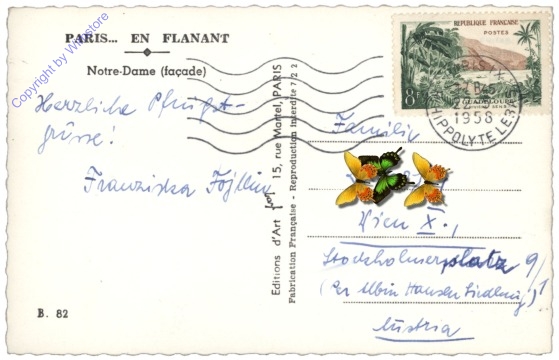 PARIS... EN FLANANT
Notre-Dame (façade)
Copyright by Wiki-store
Herzliche Pfingst-
grüsse!
Franziska
B. 82
Editions d'Art 15, rue Martel, PARIS
Fabrication Française - Reproduction interdite 722
REPUBLIQUE FRANÇAISE
POSTES
8F
GUADELOUPE
1958
HIPPOLYTE LEBAS
Familie
Wien X.,
Stockholmerplatz 9/1
(Per Albin Hansen Siedlung)
Austria